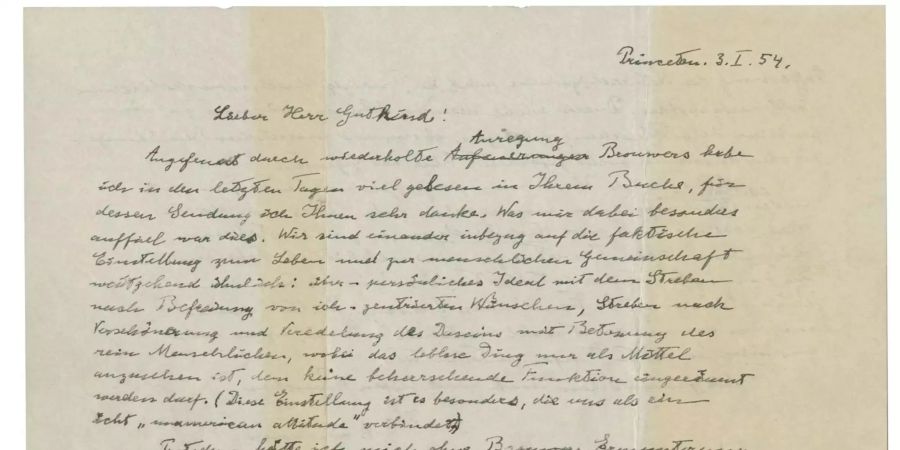 Princeton. 3. I. 54.
Lieber Herr Gutkind!
Anregung
Angefeuert durch wiederholte Brouwers habe
ich in den letzten Tagen viel gelesen in Ihrem Buche, für
dessen Sendung ich Ihnen sehr danke. Was mir dabei besonders
auffiel war dies. Wir sind einander inbezug auf die faktische
Einstellung zum Leben und zur menschlichen Gemeinschaft
weitgehend ähnlich: über-persönliches Ideal mit dem Streben
nach Befreiung von ich-zentrierten Wünschen, Streben nach
Verschönerung und Veredelung des Daseins mit Betonung des
rein Menschlichen, wobei das leblose Ding nur als Mittel
anzusehen ist, dem keine beherrschende Funktion eingeräumt
werden darf. (Diese Einstellung ist es besonders, die uns als ein
ächt „unamerican attitude" verbindet)
Trotzdem hätte ich mich ohne Brouwers Ermunterung